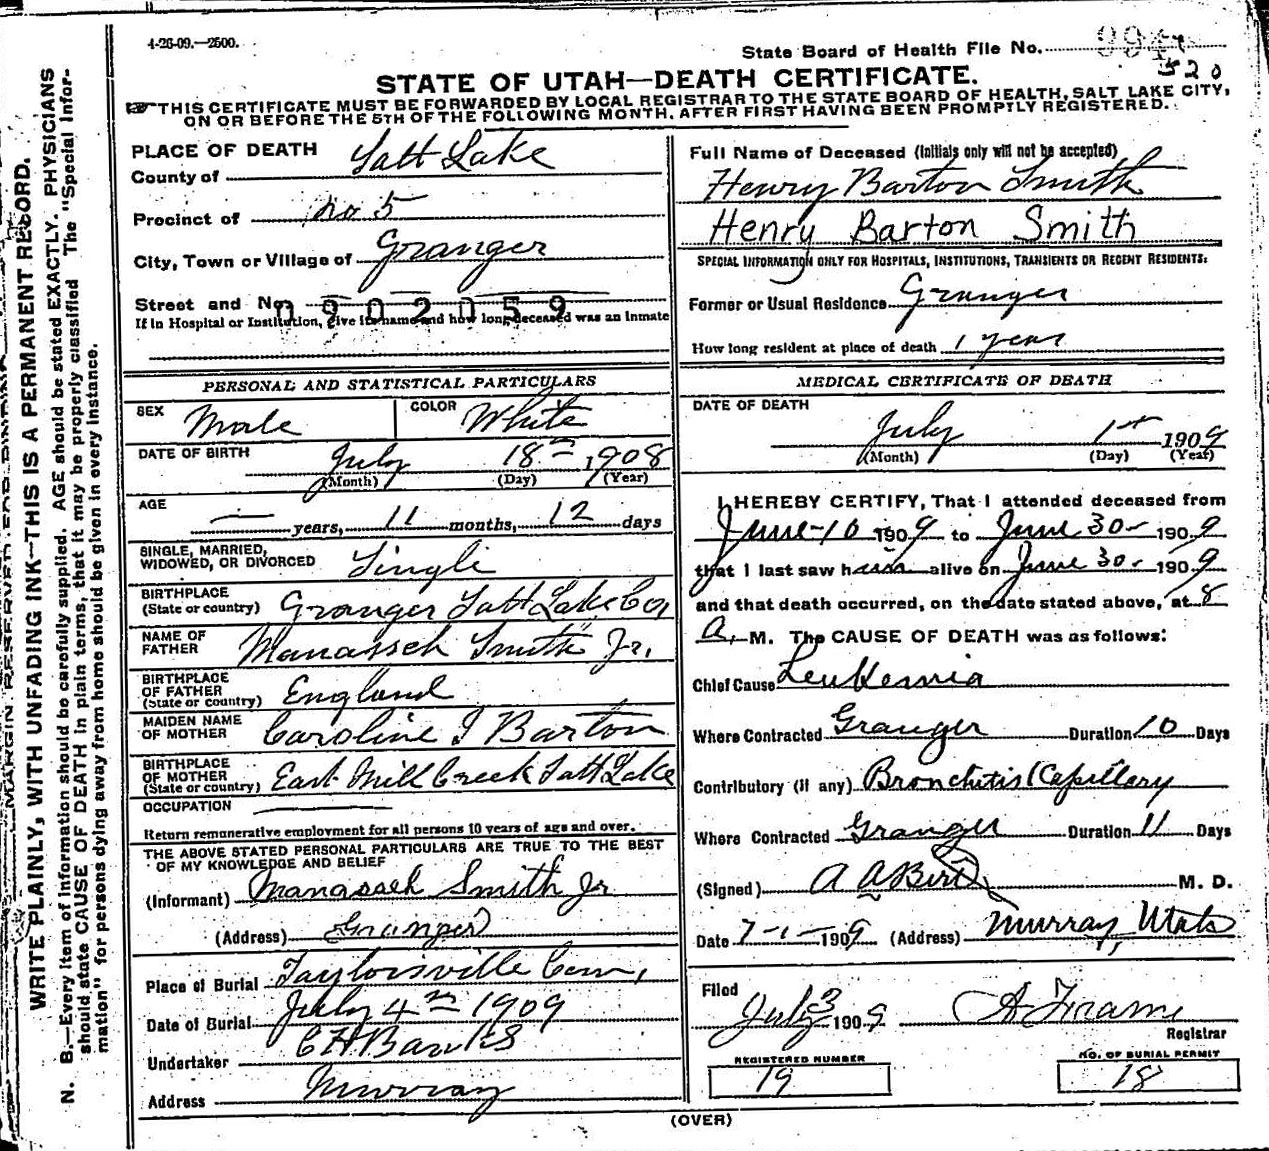 4-26-09.—2500.
State Board of Health File No. 994
520
STATE OF UTAH—DEATH CERTIFICATE.
THIS CERTIFICATE MUST BE FORWARDED BY LOCAL REGISTRAR TO THE STATE BOARD OF HEALTH, SALT LAKE CITY,
ON OR BEFORE THE 5TH OF THE FOLLOWING MONTH, AFTER FIRST HAVING BEEN PROMPTLY REGISTERED.
PLACE OF DEATH
County of Salt Lake
Precinct of No 5
City, Town or Village of Granger
Street and No.
0902059
If in Hospital or Institution, give its name and how long deceased was an inmate
PERSONAL AND STATISTICAL PARTICULARS
SEX Male COLOR White
DATE OF BIRTH July 18th 1908
(Month) (Day) (Year)
AGE — years, 11 months, 12 days
SINGLE, MARRIED,
WIDOWED, OR DIVORCED Single
BIRTHPLACE
(State or country) Granger Salt Lake Co,
NAME OF
FATHER Manasseh Smith Jr.
BIRTHPLACE
OF FATHER
(State or country) England
MAIDEN NAME
OF MOTHER Caroline I Barton
BIRTHPLACE
OF MOTHER
(State or country) East Mill Creek Salt Lake
OCCUPATION
Return remunerative employment for all persons 10 years of age and over.
THE ABOVE STATED PERSONAL PARTICULARS ARE TRUE TO THE BEST
OF MY KNOWLEDGE AND BELIEF
(Informant) Manasseh Smith Jr
(Address) Granger
Place of Burial Taylorsville Cem,
Date of Burial July 4th 1909
Undertaker C H Banks
Address Murray
Full Name of Deceased (Initials only will not be accepted)
Henry Barton Smith
Henry Barton Smith
SPECIAL INFORMATION ONLY FOR HOSPITALS, INSTITUTIONS, TRANSIENTS OR RECENT RESIDENTS:
Former or Usual Residence Granger
How long resident at place of death 1 year
MEDICAL CERTIFICATE OF DEATH
DATE OF DEATH
July 1st 1909
(Month) (Day) (Year)
I HEREBY CERTIFY, That I attended deceased from
June-10 1909 to June 30- 1909
that I last saw him alive on June 30- 1909
and that death occurred, on the date stated above, at 8
A. M. The CAUSE OF DEATH was as follows:
Chief Cause Leukemia
Where Contracted Granger Duration 10 Days
Contributory (if any) Bronchitis (Capillary
Where Contracted Granger Duration 11 Days
(Signed) A A Bird M. D.
Date 7-1-1909 (Address) Murray, Utah
Filed
July 3 1909 A Frame
Registrar
REGISTERED NUMBER
19
NO. OF BURIAL PERMIT
18
(OVER)
MARGIN RESERVED FOR BINDING
WRITE PLAINLY, WITH UNFADING INK—THIS IS A PERMANENT RECORD.
N. B.—Every item of information should be carefully supplied. AGE should be stated EXACTLY. PHYSICIANS
should state CAUSE OF DEATH in plain terms, that it may be properly classified. The "Special Infor-
mation" for persons dying away from home should be given in every instance.